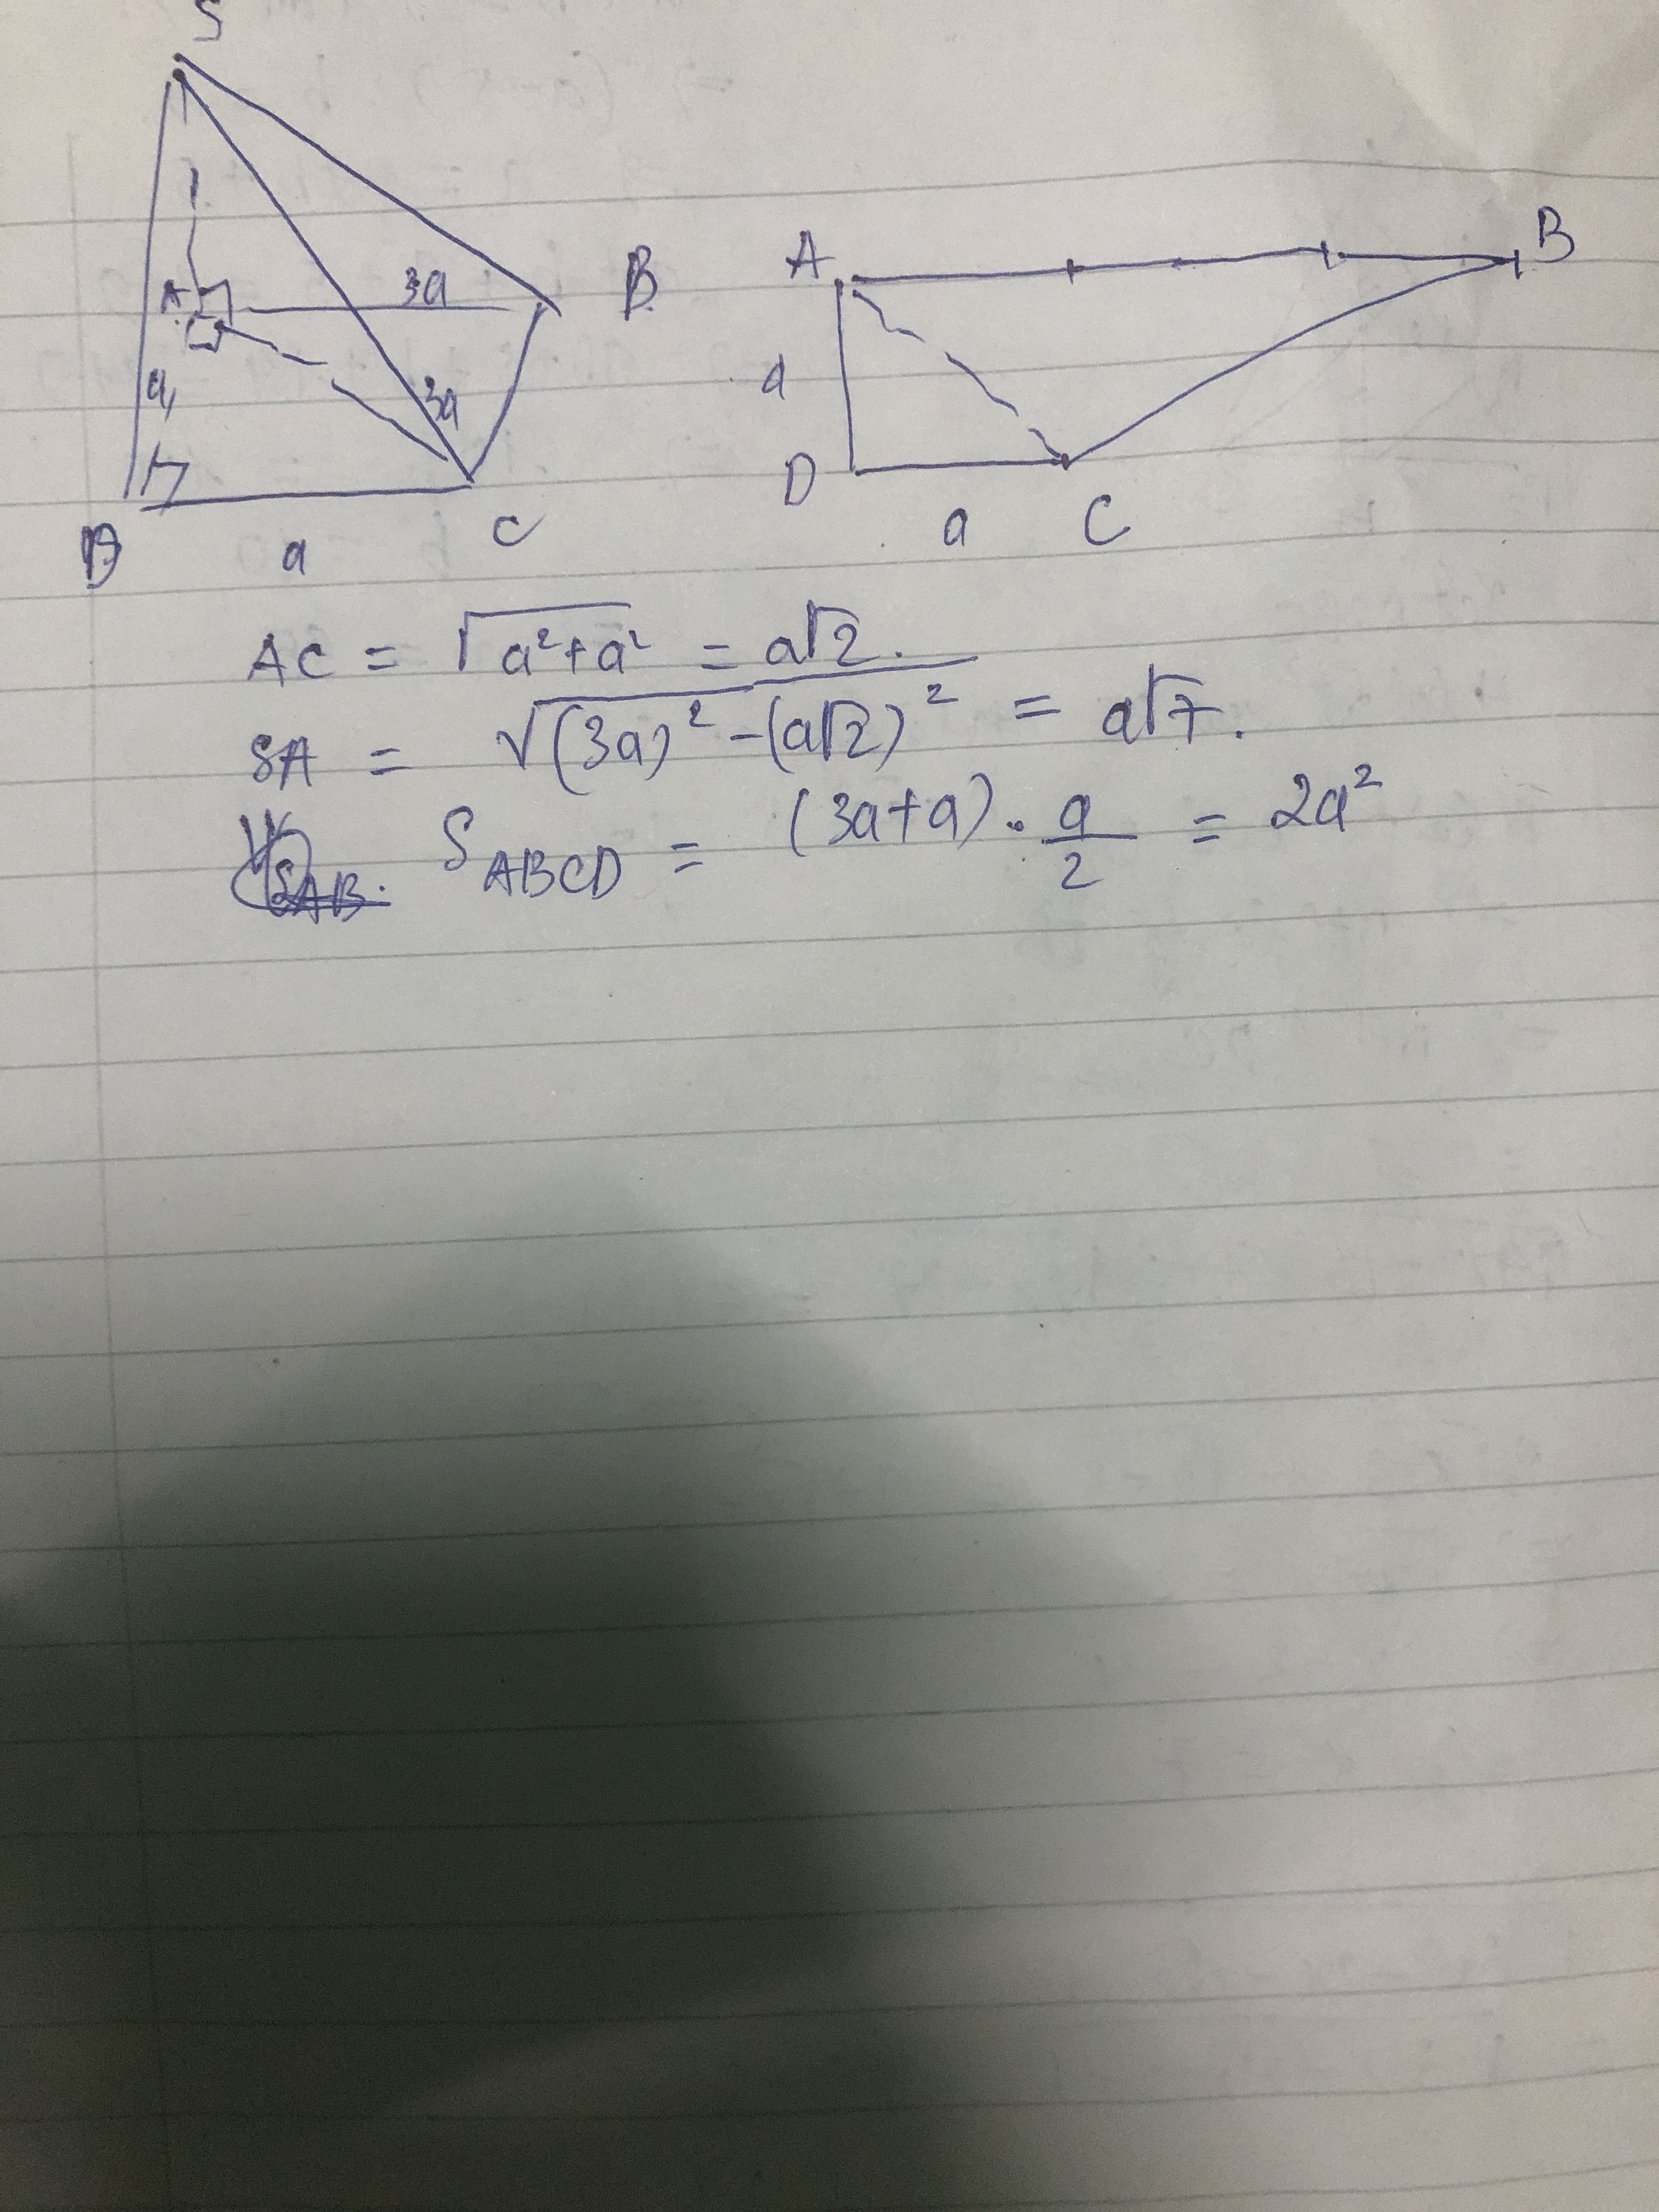 S
A
3a
B
a
3a
D
a
C
A
B
a
D
a
C
AC = √(a²+a²) = a√2.
SA = √((3a)² - (a√2)²) = a√7.
S_ABCD = (3a+a) . a/2 = 2a²